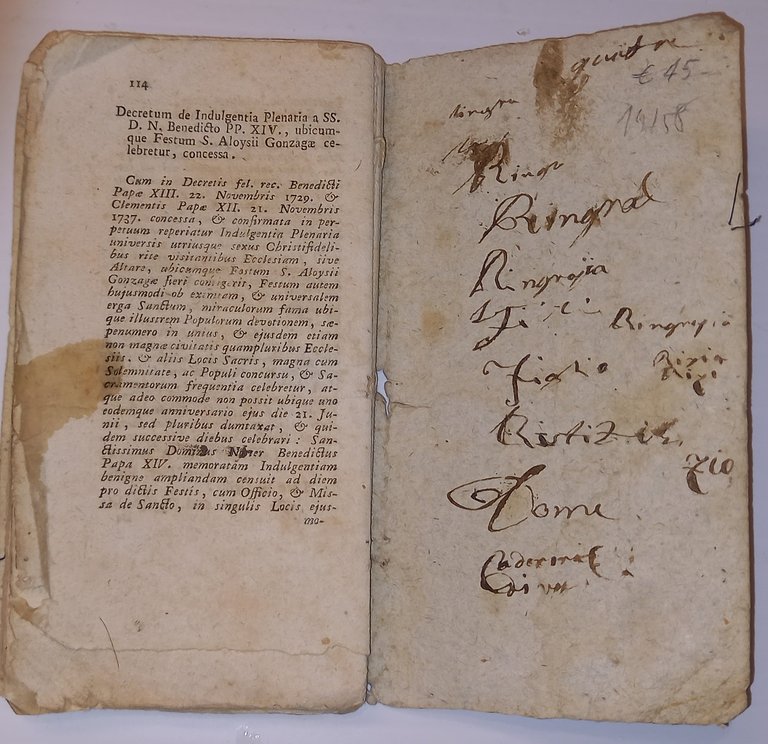 114
Decretum de Indulgentia Plenaria a SS.
D. N. Benedicto PP. XIV., ubicum-
que Festum S. Aloysii Gonzagæ ce-
lebretur, concessa.
Cum in Decretis fel. rec. Benedicti
Papæ XIII. 22. Novembris 1729. &
Clementis Papæ XII. 21. Novembris
1737. concessa, & confirmata in per-
petuum reperiatur Indulgentia Plenaria
universis utriusque sexus Christifideli-
bus rite visitantibus Ecclesiam, sive
Altare, ubicumque Festum S. Aloysii
Gonzagæ fieri contigerit, Festum autem
hujusmodi ob eximiam, & universalem
erga Sanctum, miraculorum fama ubi-
que illustrem Populorum devotionem, sæ-
penumero in unius, & ejusdem etiam
non magnæ civitatis quampluribus Eccle-
siis, & aliis Locis Sacris, magna cum
Solemnitate, ac Populi concursu, & Sa-
cramentorum frequentia celebretur, at-
que adeo commode non possit ubique uno
eodemque anniversario ejus die 21. Ju-
nii, sed pluribus dumtaxat, & qui-
dem successive diebus celebrari: San-
ctissimus Dominus Noster Benedictus
Papa XIV. memoratam Indulgentiam
benigne ampliandam censuit ad diem
pro dictis Festis, cum Officio, & Mis-
sa de Sancto, in singulis Locis ejus-
mo-
€ 45-
Ringr
Ringrazia
Figlio
Come